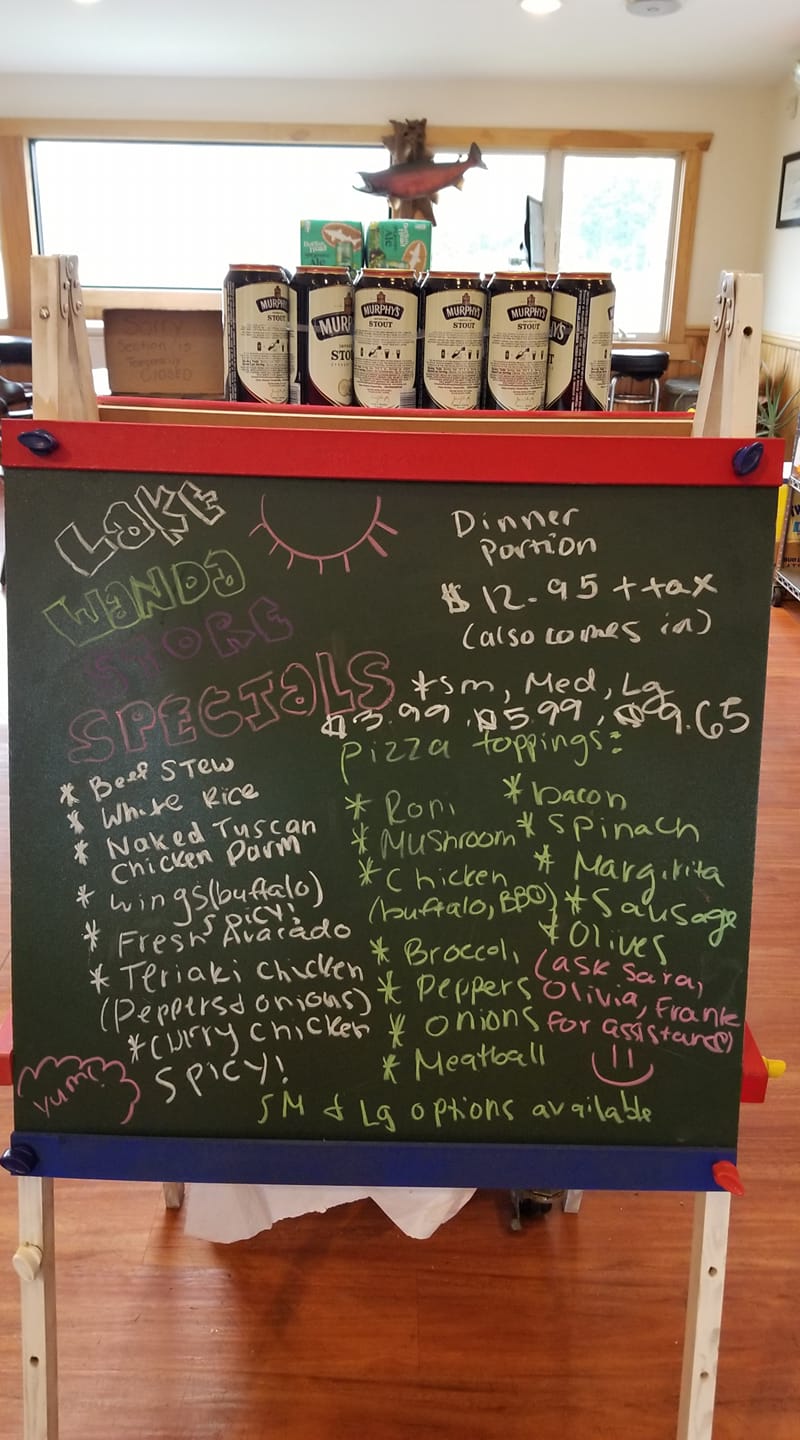 MURPHY'S
STOUT
MURPHY'S
STOUT
MURPHY'S
STOUT
MURPHY'S
STOUT
Ale
Section is
CLOSED
LaKE
WaNDa
STORE
SPECIaLS
* Beef STew
* White Rice
* Naked Tuscan
Chicken Parm
* wings (buffalo)
SPicy!
* Fresh Avacado
* Teriaki Chicken
(Peppers & onions)
* Curry Chicken
SPicy!
yum!
Dinner
Portion
$12.95 + tax
(also comes in)
* sm, Med, Lg
$3.99, $5.99, $9.65
Pizza toppings:
* Roni
* Mushroom
* Chicken
(buffalo, BBQ)
* Broccoli
* Peppers
* Onions
* Meatball
* bacon
* Spinach
* Margirita
* Sausage
* Olives
(ask Sara,
Olivia, Frank
for assistance)
SM & Lg options available